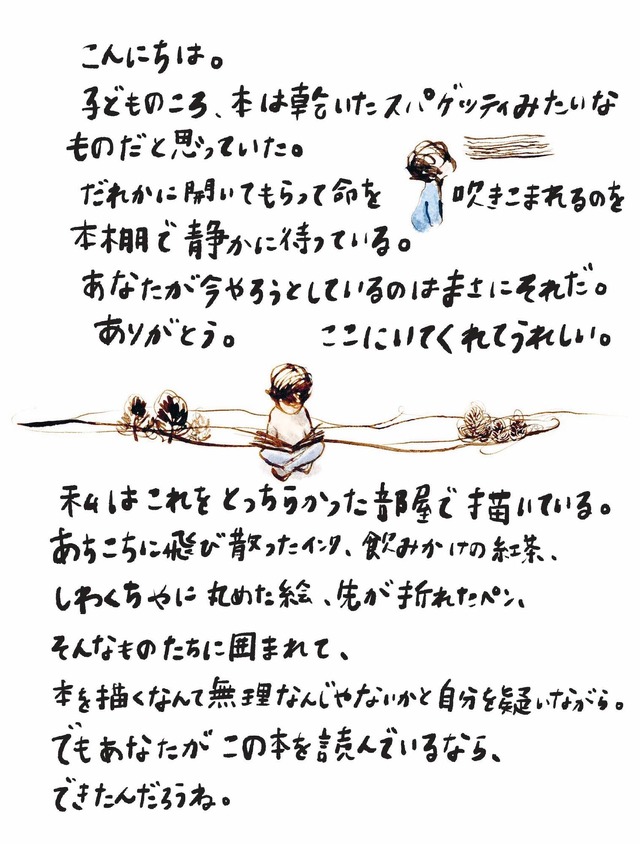 こんにちは。
子どものころ、本は乾いたスパゲッティみたいな
ものだと思っていた。
だれかに開いてもらって命を吹きこまれるのを
本棚で静かに待っている。
あなたが今やろうとしているのはまさにそれだ。
ありがとう。 ここにいてくれてうれしい。
私はこれをとっちらかった部屋で描いている。
あちこちに飛び散ったインク、飲みかけの紅茶、
しわくちゃに丸めた絵、先が折れたペン、
そんなものたちに囲まれて、
本を描くなんて無理なんじゃないかと自分を疑いながら。
でもあなたがこの本を読んでいるなら、
できたんだろうね。